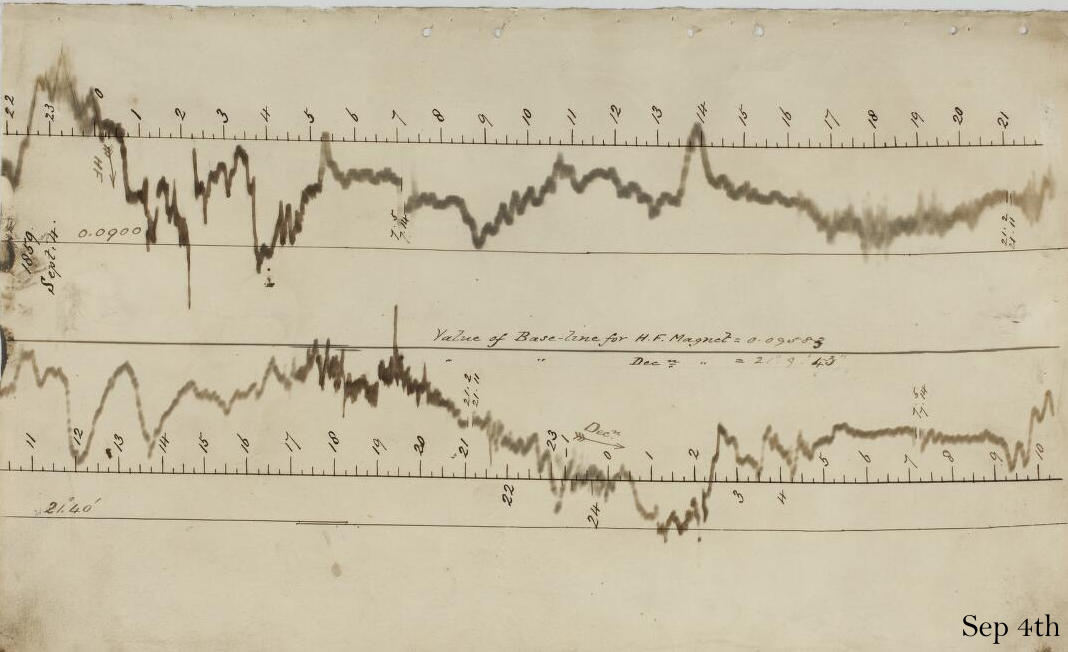 22 23 0 1 2 3 4 5 6 7 8 9 10 11 12 13 14 15 16 17 18 19 20 21
HF
7.5
7.14
21.2
21.11
0.0900
1859
Sept. 4.
Value of Base-line for H.F. Magnet = 0.0958
" " Decn " = 21° 9'
21.2
21.11
7.5
7.14
Decn
11 12 13 14 15 16 17 18 19 20 21 22 23 24 0 1 2 3 4 5 6 7 8 9 10
21°.40'
Sep 4th